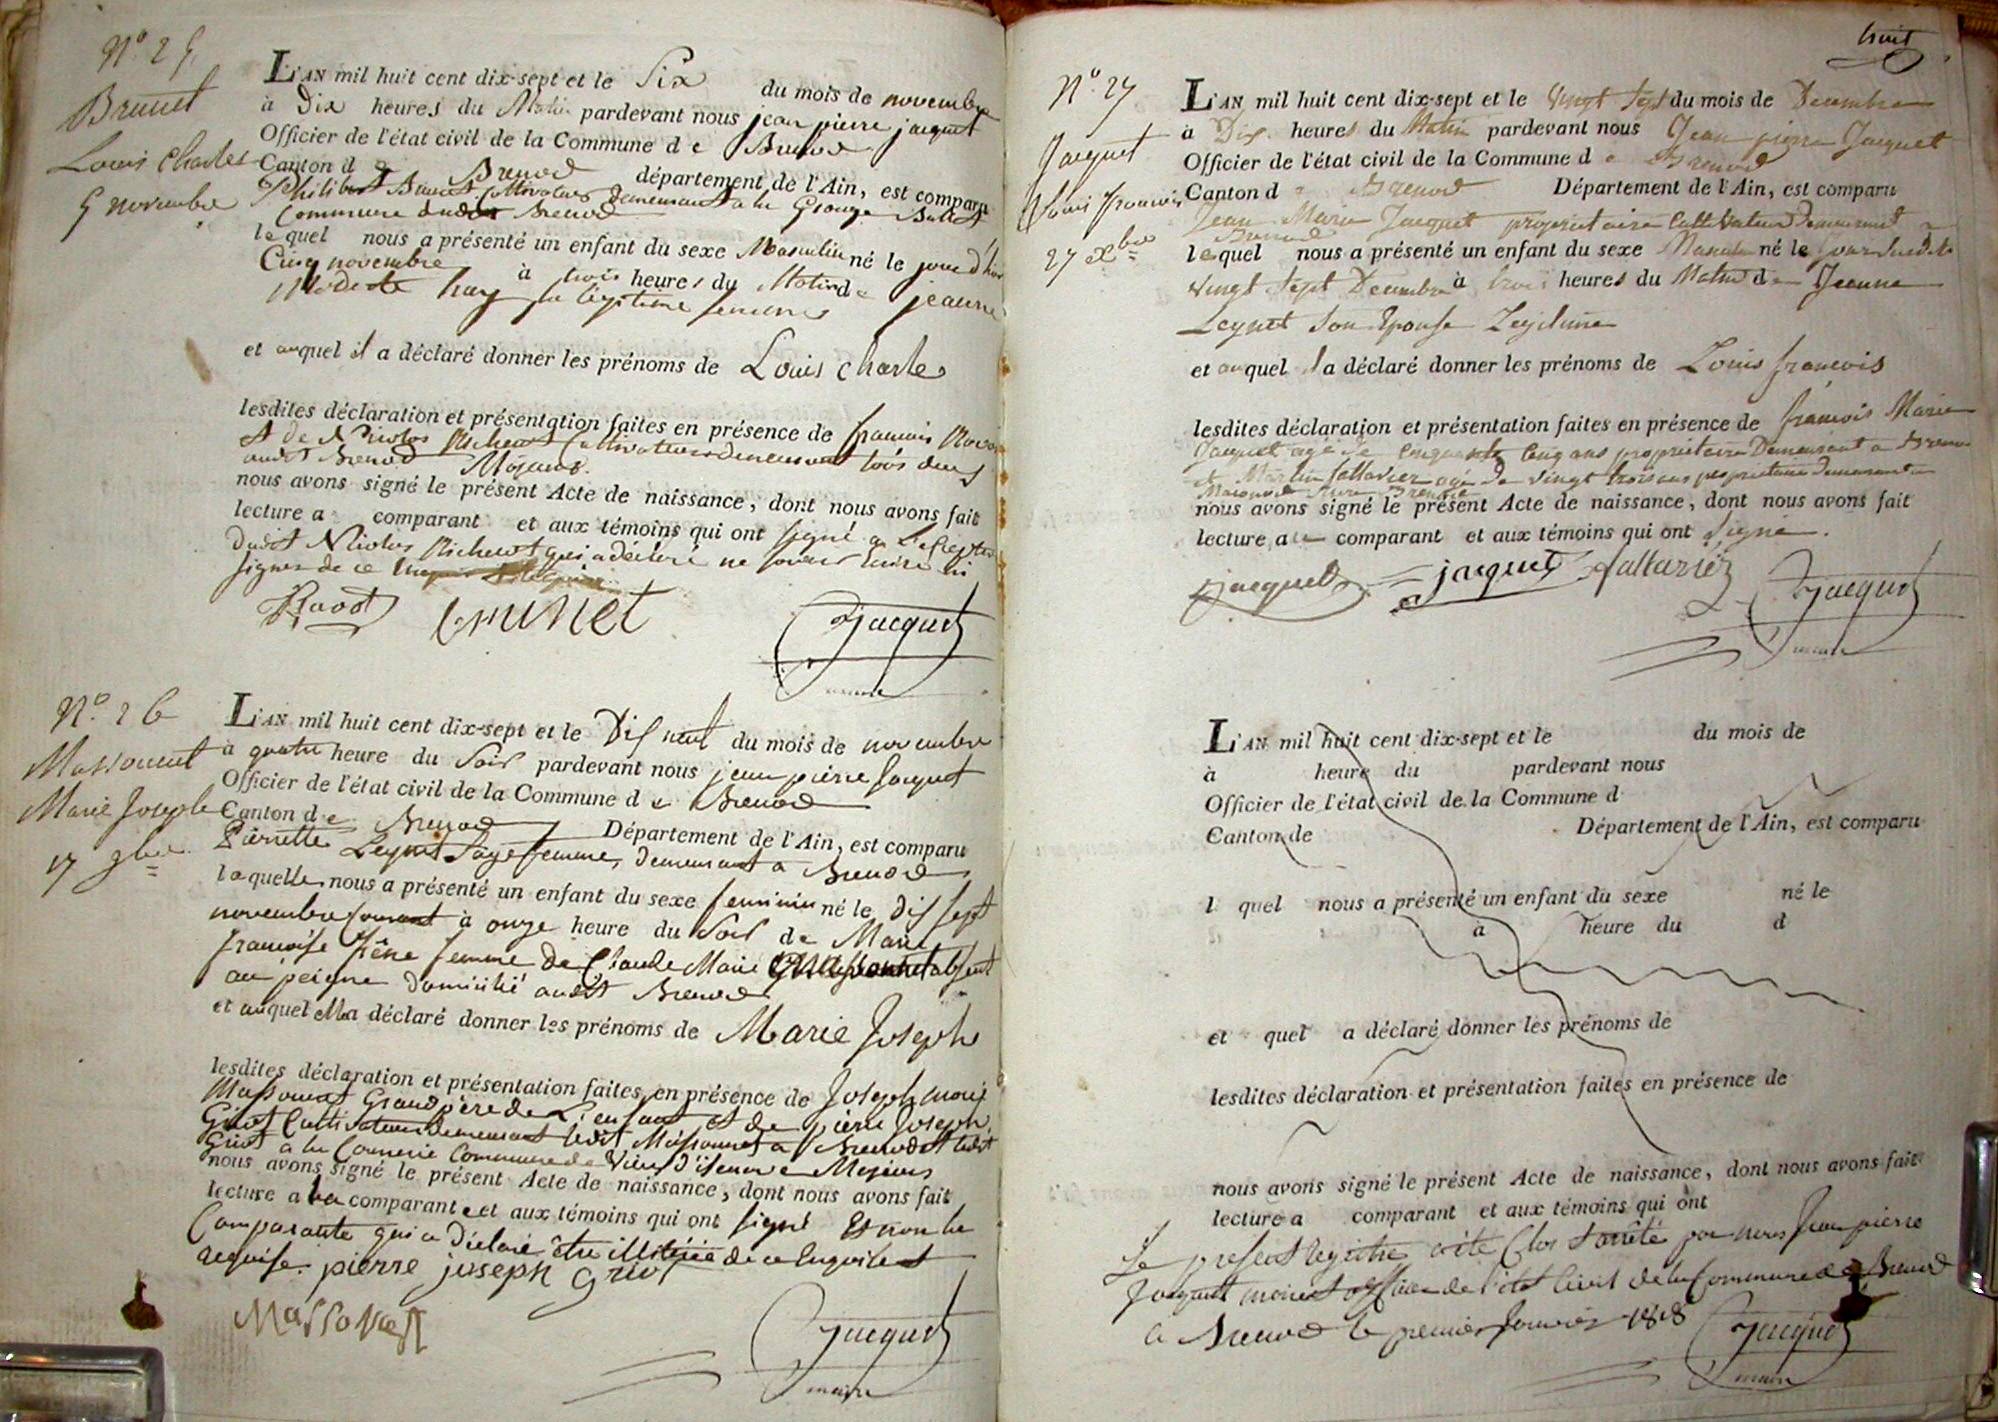 N.° 25.
Brunet
Louis Charles
5 novembre
L'AN mil huit cent dix-sept et le Six du mois de novembre
à Dix heures du Matin pardevant nous jean pierre jacquet
Officier de l'état civil de la Commune de Brenod
Canton de Brenod département de l'Ain, est comparu
Philibert Brunet Cultivateur demeurant à la Grange
Commune dudit Brenod
lequel nous a présenté un enfant du sexe Masculin né le jour d'hier
Cinq novembre à trois heures du Matin de jeanne
sa légitime femme
et auquel il a déclaré donner les prénoms de Louis Charles
lesdites déclaration et présentation faites en présence de francois Ravot
et de Nicolas Richerot Cultivateurs demeurant tous deux
audit Brenod Majeurs.
nous avons signé le présent Acte de naissance, dont nous avons fait
lecture a comparant et aux témoins qui ont signé a
dudit Nicolas Richerot qui a déclaré ne savoir
signer de ce
Ravot Brunet Jacquet
maire
N.° 26
Massonnet
Marie Josephe
17 9bre
L'AN mil huit cent dix-sept et le Dix neuf du mois de novembre
à quatre heure du Soir pardevant nous jean pierre Jacquet
Officier de l'état civil de la Commune de Brenod
Canton de Brenod Département de l'Ain, est comparu
Pierrette Leynet Sage femme, demeurant a Brenod
laquelle nous a présenté un enfant du sexe feminin né le dix sept
novembre Courant à onze heure du Soir de Marie
francoise frêne femme de Claude Marie Massonnet absent
au peigne domicilié audit Brenod
et auquel Elle a déclaré donner les prénoms de Marie Josephe
lesdites déclaration et présentation faites en présence de Joseph marie
Massonnet Grand père de L'enfant et de pierre Joseph
Griot Cultivateurs demeurant ledit Massonnet a Brenod et ledit
Griot a la Commune de Vieu D'isenave Majeurs
nous avons signé le présent Acte de naissance, dont nous avons fait
lecture a la comparante et aux témoins qui ont signé Et non la
Comparante qui a Déclaré être illitérée de ce Enquise et
requise. pierre joseph griot
Massonnet Jacquet
maire
huit
N.° 27
Jacquet
Louis francois
27 Xbre
L'AN mil huit cent dix-sept et le vingt Sept du mois de Decembre
à Dix heures du Matin pardevant nous Jean pierre Jacquet
Officier de l'état civil de la Commune de Brenod
Canton de Brenod Département de l'Ain, est comparu
Jean Marie Jacquet proprietaire Cultivateur Demeurant a
Brenod
lequel nous a présenté un enfant du sexe Masculin né le jour susdit
vingt Sept Decembre à trois heures du Matin de Jeanne
Leynet Son Epouse Legitime
et auquel il a déclaré donner les prénoms de Louis francois
lesdites déclaration et présentation faites en présence de francois Marie
Jacquet agé de Cinquante Cinq ans proprietaire Demeurant a Brenod
et Martin Sallavier agé de vingt trois ans proprietaire demeurant a
nous avons signé le présent Acte de naissance, dont nous avons fait
lecture au comparant et aux témoins qui ont Signé.
Jacquet jacquet Sallavier Jacquet
maire
L'AN mil huit cent dix-sept et le du mois de
à heure du pardevant nous
Officier de l'état civil de la Commune d
Canton de Département de l'Ain, est comparu
l quel nous a présenté un enfant du sexe né le
à heure du d
et quel a déclaré donner les prénoms de
lesdites déclaration et présentation faites en présence de
nous avons signé le présent Acte de naissance, dont nous avons fait
lecture a comparant et aux témoins qui ont
Le present registre a été Clos & arrêté par nous Jean pierre
Jacquet maire et officier de l'état Civil de la Commune de Brenod
a Brenod le premier Janvier 1818 Jacquet
maire